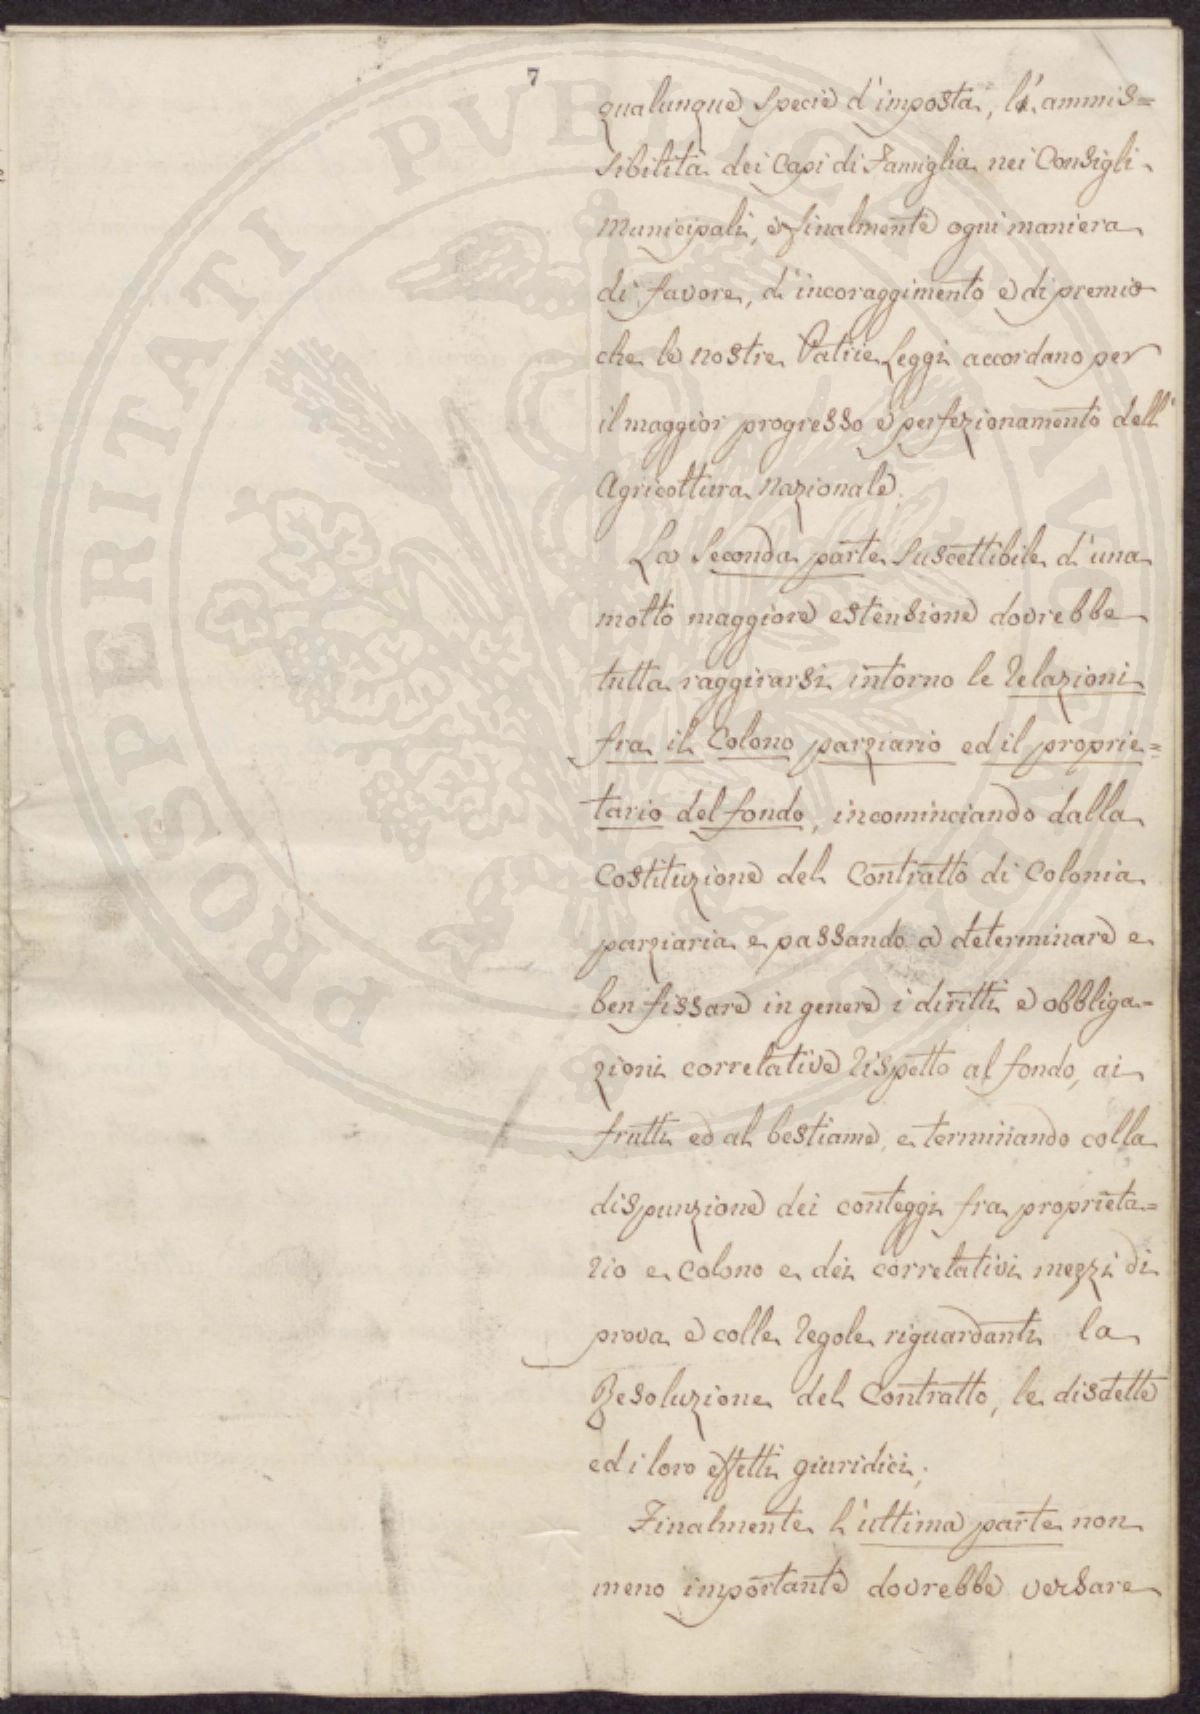 7
qualunque specie d'imposta, l'ammis=
sibilità dei Capi di Famiglia nei Consigli
Municipali, e finalmente ogni maniera
di favore, d'incoraggimento e di premio
che le nostre Patrie Leggi accordano per
il maggior progresso e perfezionamento dell'
Agricoltura Nazionale.
La Seconda parte suscettibile d'una
molto maggiore estensione dovrebbe
tutta raggirarsi intorno le Relazioni
fra il Colono parziario ed il proprie=
tario del fondo, incominciando dalla
Costituzione del Contratto di Colonia
parziaria e passando a determinare e
ben fissare in genere i diritti e obbliga=
zioni correlative rispetto al fondo, ai
frutti ed al bestiame, e terminando colla
dispunzione dei conteggi fra proprieta=
rio e Colono e dei correlativi mezzi di
prova e colle regole riguardanti la
Resoluzione del Contratto, le disdette
ed i loro effetti giuridici.
Finalmente l'ultima parte non
meno importante dovrebbe versare
PROSPERITATI PUBLICAE